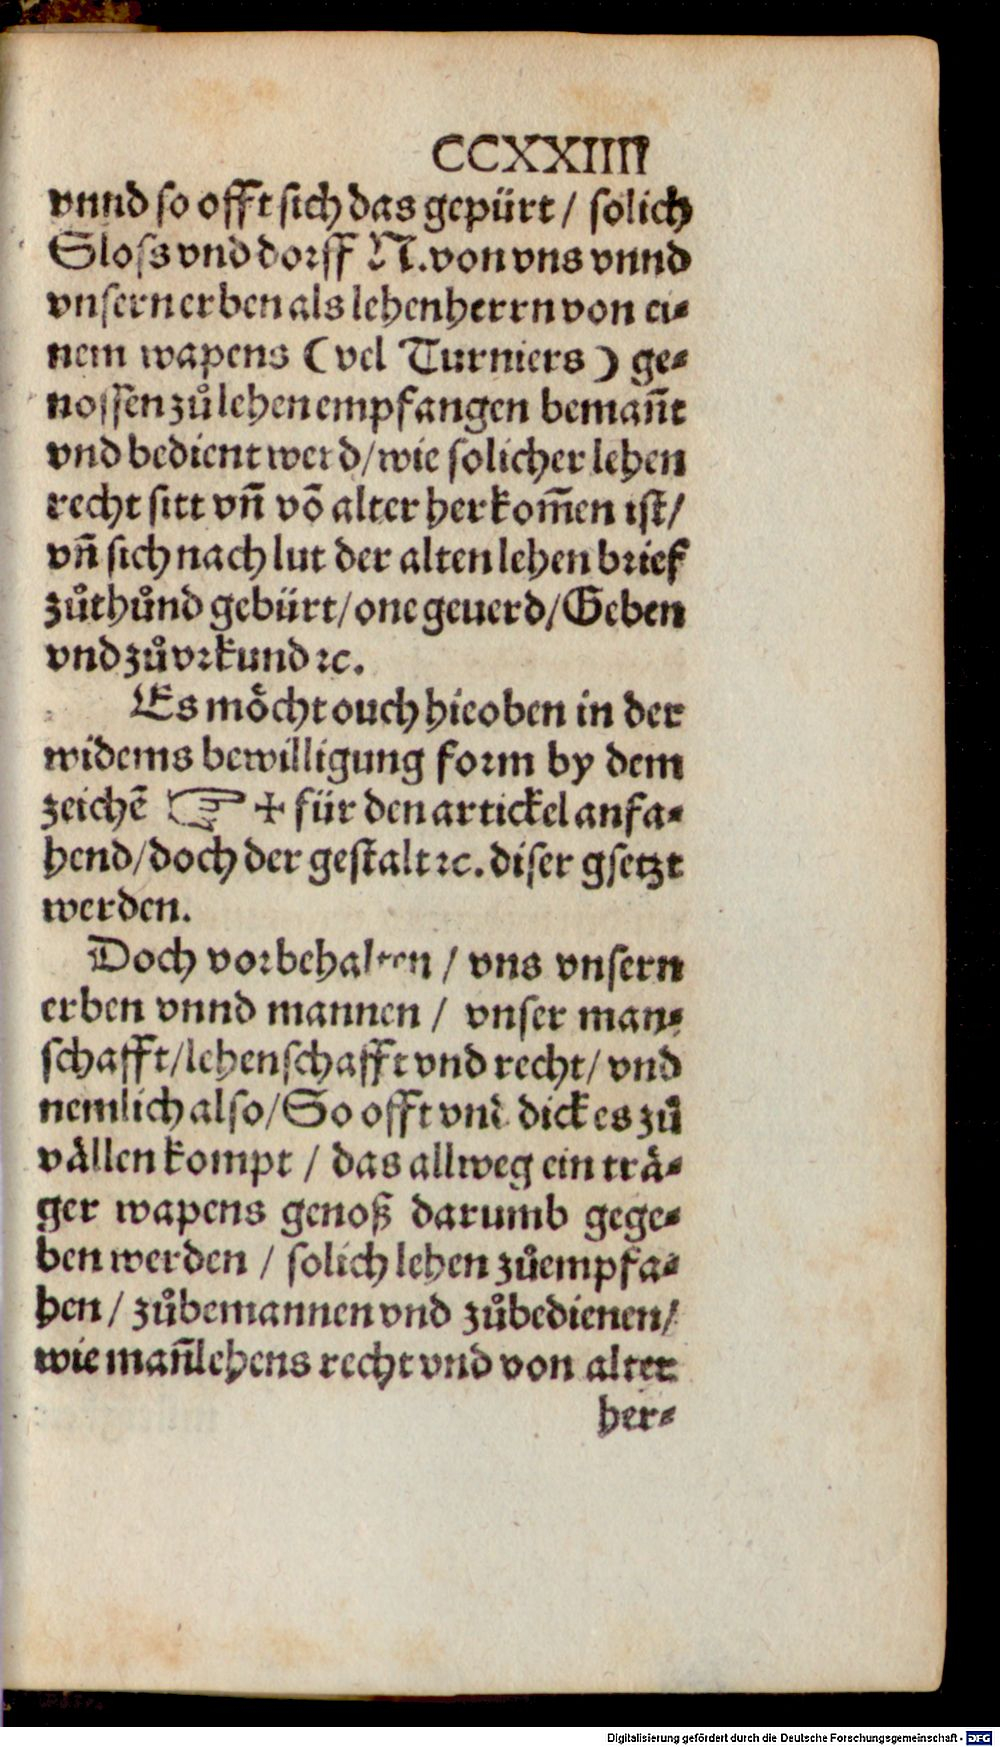 CCXXIIII
vnnd so offt sich das gepürt / solich
Sloss vnd dorff N. von vns vnnd
vnsern erben als lehenherrn von ei⸗
nem wapens (vel Turniers) ge⸗
nossen zuͦ lehen empfangen bemañt
vnd bedient werd/wie solicher lehen
recht sitt vñ võ alter herkom̃en ist/
vñ sich nach lut der alten lehen brief
zuͦthuͦnd gebürt/one geuerd/Geben
vnd zuͦ vrkund ꝛc.
Es moͤcht ouch hieoben in der
widems bewilligung form by dem
zeichẽ ☞ ✢ für den artickel anfa⸗
hend/doch der gestalt ꝛc. diser gsetzt
werden.
Doch vorbehalten / vns vnsern
erben vnnd mannen / vnser man⸗
schafft/lehenschafft vnd recht/ vnd
nemlich also/So offt vnd dick es zuͦ
vaͤllen kompt / das allweg ein traͤ⸗
ger wapens genoß darumb gege⸗
ben werden / solich lehen zuͦempfa⸗
hen / zuͦbemannen vnd zuͦbedienen/
wie mañlehens recht vnd von alter
her⸗
Digitalisierung gefördert durch die Deutsche Forschungsgemeinschaft - DFG